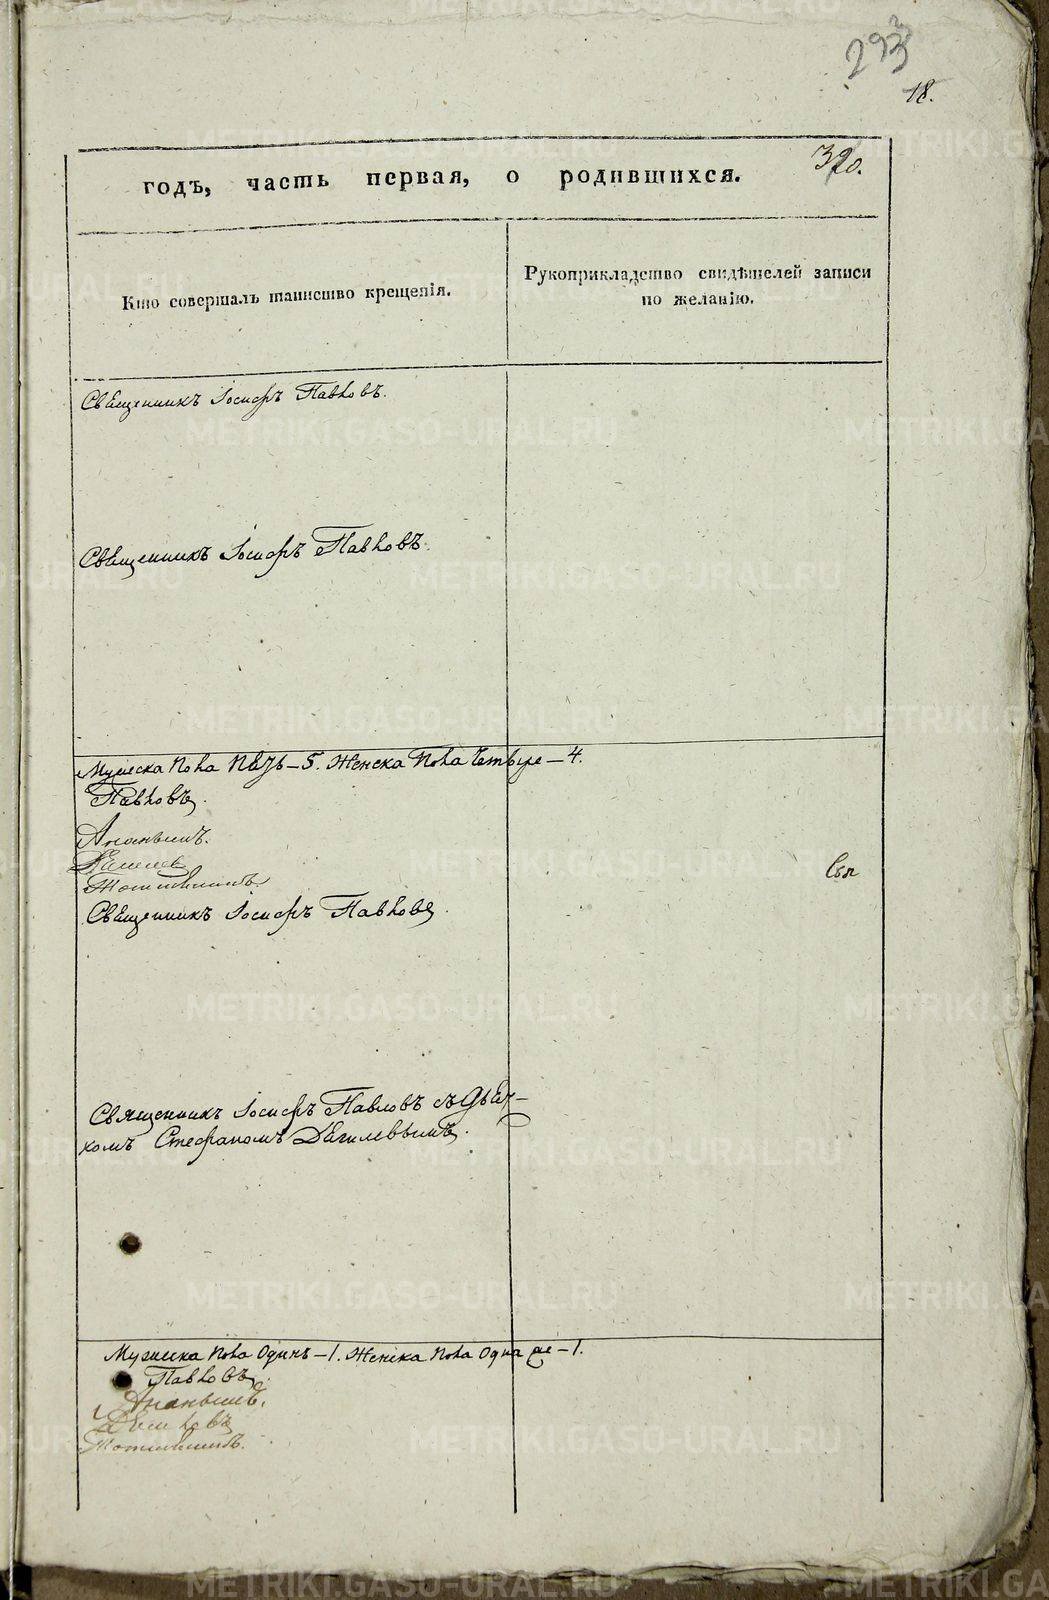 293
18.
320.
годъ, часть первая, о родившихся.
Кто совершалъ таинство крещенія.
Рукоприкладство свидѣтелей записи
по желанію.
Священникъ Іосифъ Павловъ.
Священникъ Іосифъ Павловъ.
Мужеска пола пять – 5. Женска пола четыре – 4.
Павловъ.
Ананьинъ.
Священникъ Іосифъ Павловъ.
Священникъ Іосифъ Павловъ съ дьяч-
комъ Стефаномъ
Мужеска пола одинъ – 1. Женска пола одна же – 1.
Павловъ.
Ананьинъ.
METRIKI.GASO-URAL.RU